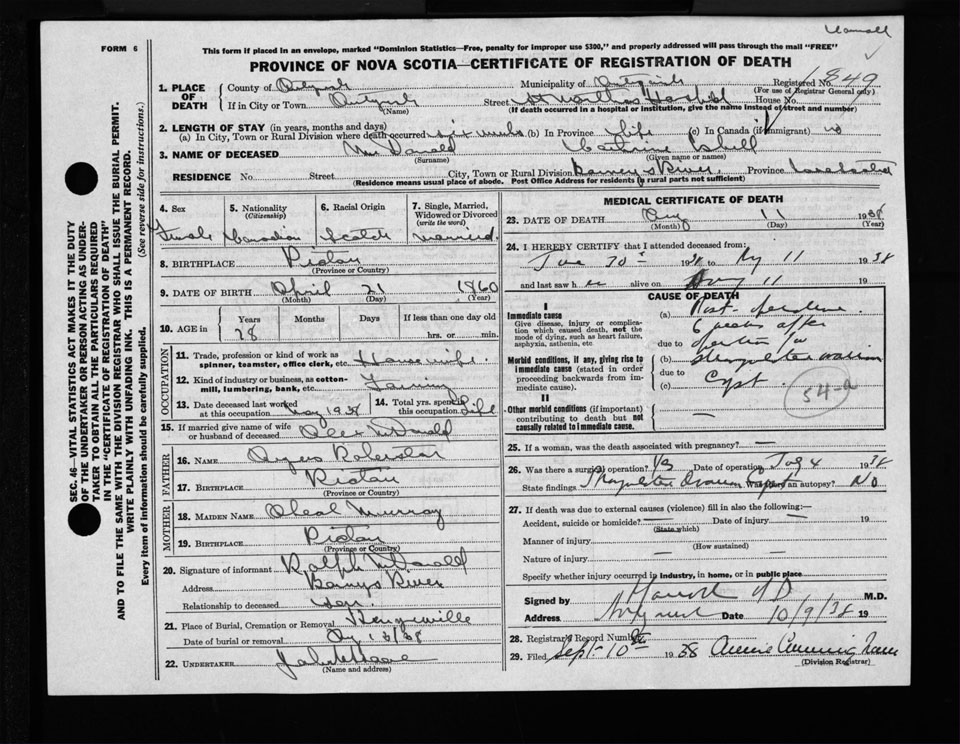 FORM 6
This form if placed in an envelope, marked "Dominion Statistics—Free, penalty for improper use $300," and properly addressed will pass through the mail "FREE"
PROVINCE OF NOVA SCOTIA—CERTIFICATE OF REGISTRATION OF DEATH
1. PLACE OF DEATH
County of
Municipality of
Registered No. 1849
(For use of Registrar General only)
If in City or Town
(Name)
Street St Marthas Hospital
House No.
(If death occurred in a hospital or institution, give the name instead of street and number)
2. LENGTH OF STAY (in years, months and days)
(a) In City, Town or Rural Division where death occurred six weeks (b) In Province Life (c) In Canada (if immigrant) no
3. NAME OF DECEASED
(Surname)
(Given name or names)
RESIDENCE No. Street City, Town or Rural Division Barney's River Province
(Residence means usual place of abode. Post Office Address for residents in rural parts not sufficient)
4. Sex
Female
5. Nationality
(Citizenship)
Canadian
6. Racial Origin
Scotch
7. Single, Married, Widowed or Divorced
(write the word)
Married.
8. BIRTHPLACE Pictou
(Province or Country)
9. DATE OF BIRTH April 21 1860
(Month) (Day) (Year)
10. AGE in
Years Months Days If less than one day
78
hrs. or min.
OCCUPATION
11. Trade, profession or kind of work as spinner, teamster, office clerk, etc. Housewife.
12. Kind of industry or business, as cotton-mill, lumbering, bank, etc. Farming
13. Date deceased last worked at this occupation May 1938
14. Total yrs. spent in this occupation Life
15. If married give name of wife or husband of deceased Alex McDonald
FATHER
16. NAME Angus
17. BIRTHPLACE Pictou
(Province or Country)
MOTHER
18. MAIDEN NAME Murray
19. BIRTHPLACE Pictou
(Province or Country)
20. Signature of informant Ralph McDonald
Address Barneys River
Relationship to deceased son.
21. Place of Burial, Cremation or Removal
Date of burial or removal
22. UNDERTAKER
(Name and address)
MEDICAL CERTIFICATE OF DEATH
23. DATE OF DEATH Aug 11 1938
(Month) (Day) (Year)
24. I HEREBY CERTIFY that I attended deceased from:
30 1938 to Aug 11 1938
and last saw her alive on Aug 11 19
CAUSE OF DEATH
I
Immediate cause
Give disease, injury or complication which caused death, not the mode of dying, such as heart failure, asphyxia, asthenia, etc
Morbid conditions, if any, giving rise to immediate cause (stated in order proceeding backwards from immediate cause).
II
Other morbid conditions (if important) contributing to death but not causally related to immediate cause.
(a) Post-operative
6 weeks after
due to operation for
(b) ovarian
due to
(c) Cyst
54-a
25. If a woman, was the death associated with pregnancy? —
26. Was there a surgical operation? Yes Date of operation 4 1938
State findings ovarian Cyst Was there an autopsy? No
27. If death was due to external causes (violence) fill in also the following:—
Accident, suicide or homicide? — Date of injury — 19
(State which)
Manner of injury —
(How sustained)
Nature of injury —
Specify whether injury occurred in industry, in home, or in public place
Signed by M.D.
Address Date 10/9/38 19
28. Registrar's Record Number
29. Filed Sept. 10th 1938
(Division Registrar)
SEC. 46—VITAL STATISTICS ACT MAKES IT THE DUTY OF THE UNDERTAKER OR PERSON ACTING AS UNDERTAKER TO OBTAIN ALL THE PARTICULARS REQUIRED IN THE "CERTIFICATE OF REGISTRATION OF DEATH" AND TO FILE THE SAME WITH THE DIVISION REGISTRAR WHO SHALL ISSUE THE BURIAL PERMIT.
(See reverse side for instructions.)
WRITE PLAINLY WITH UNFADING INK. THIS IS A PERMANENT RECORD.
Every item of information should be carefully supplied.